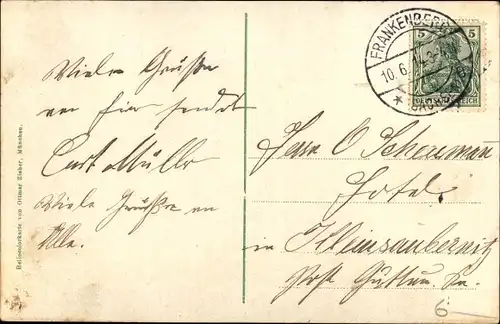 Viele Grüße
von hier sendet
Curt Müller
Viele Grüße an
Alle.
FRANKENBERG
10.6.
5 5
DEUTSCHES REICH
Hotel
in Kleinsaubernitz
Post Guttau Sa.
6
Heliocolorkarte von Ottmar Zieher, München.